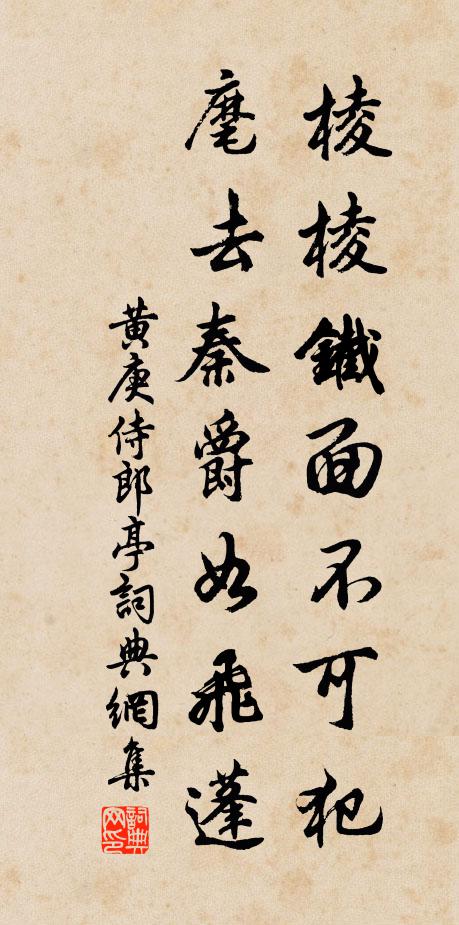 棱棱鐵面不可犯
麾去秦爵如飛蓬
黄庚侍郎亭詞典網集
詞典网印